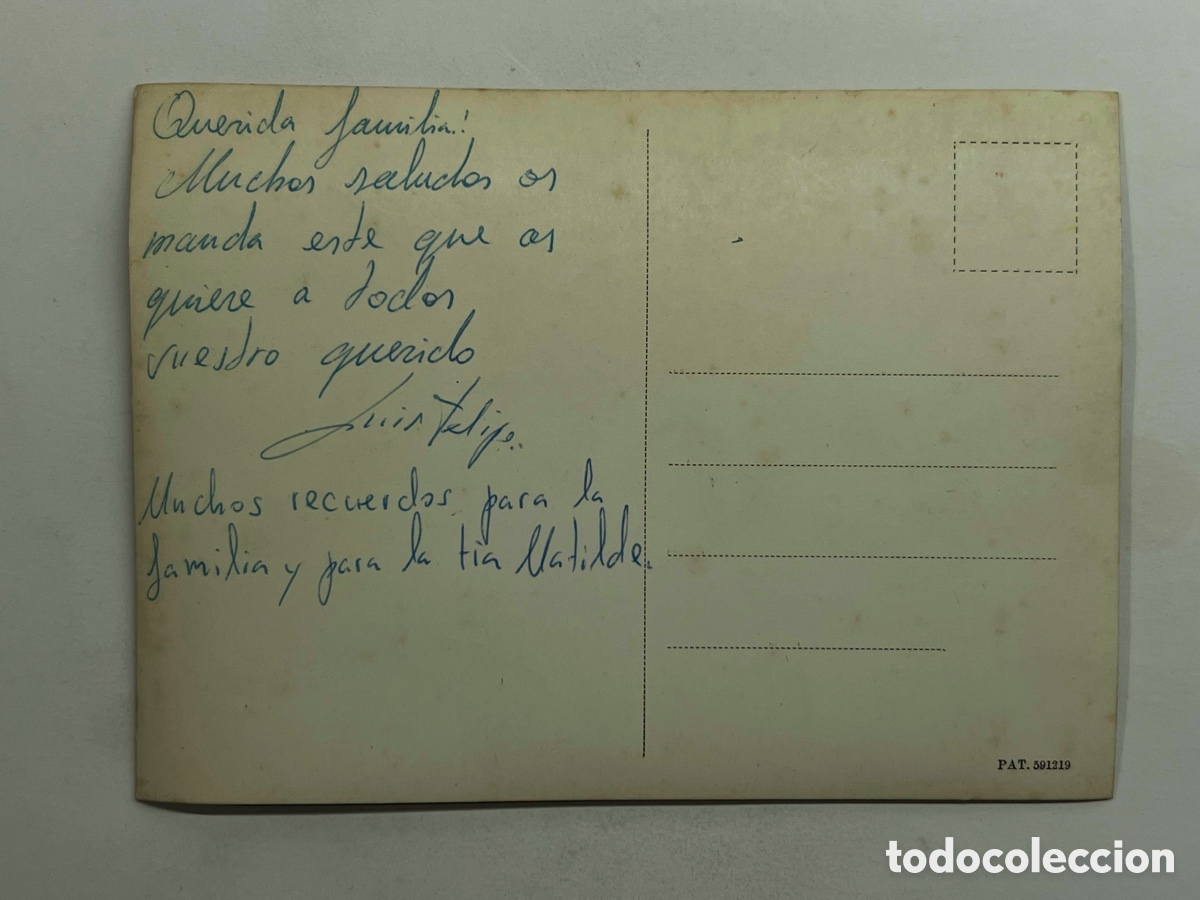 Querida familia:
Muchos saludos os
manda este que os
quiere a todos
vuestro querido
Luis Felipe.
Muchos recuerdos para la
familia y para la tia Matilde.
PAT. 591219
todocoleccion